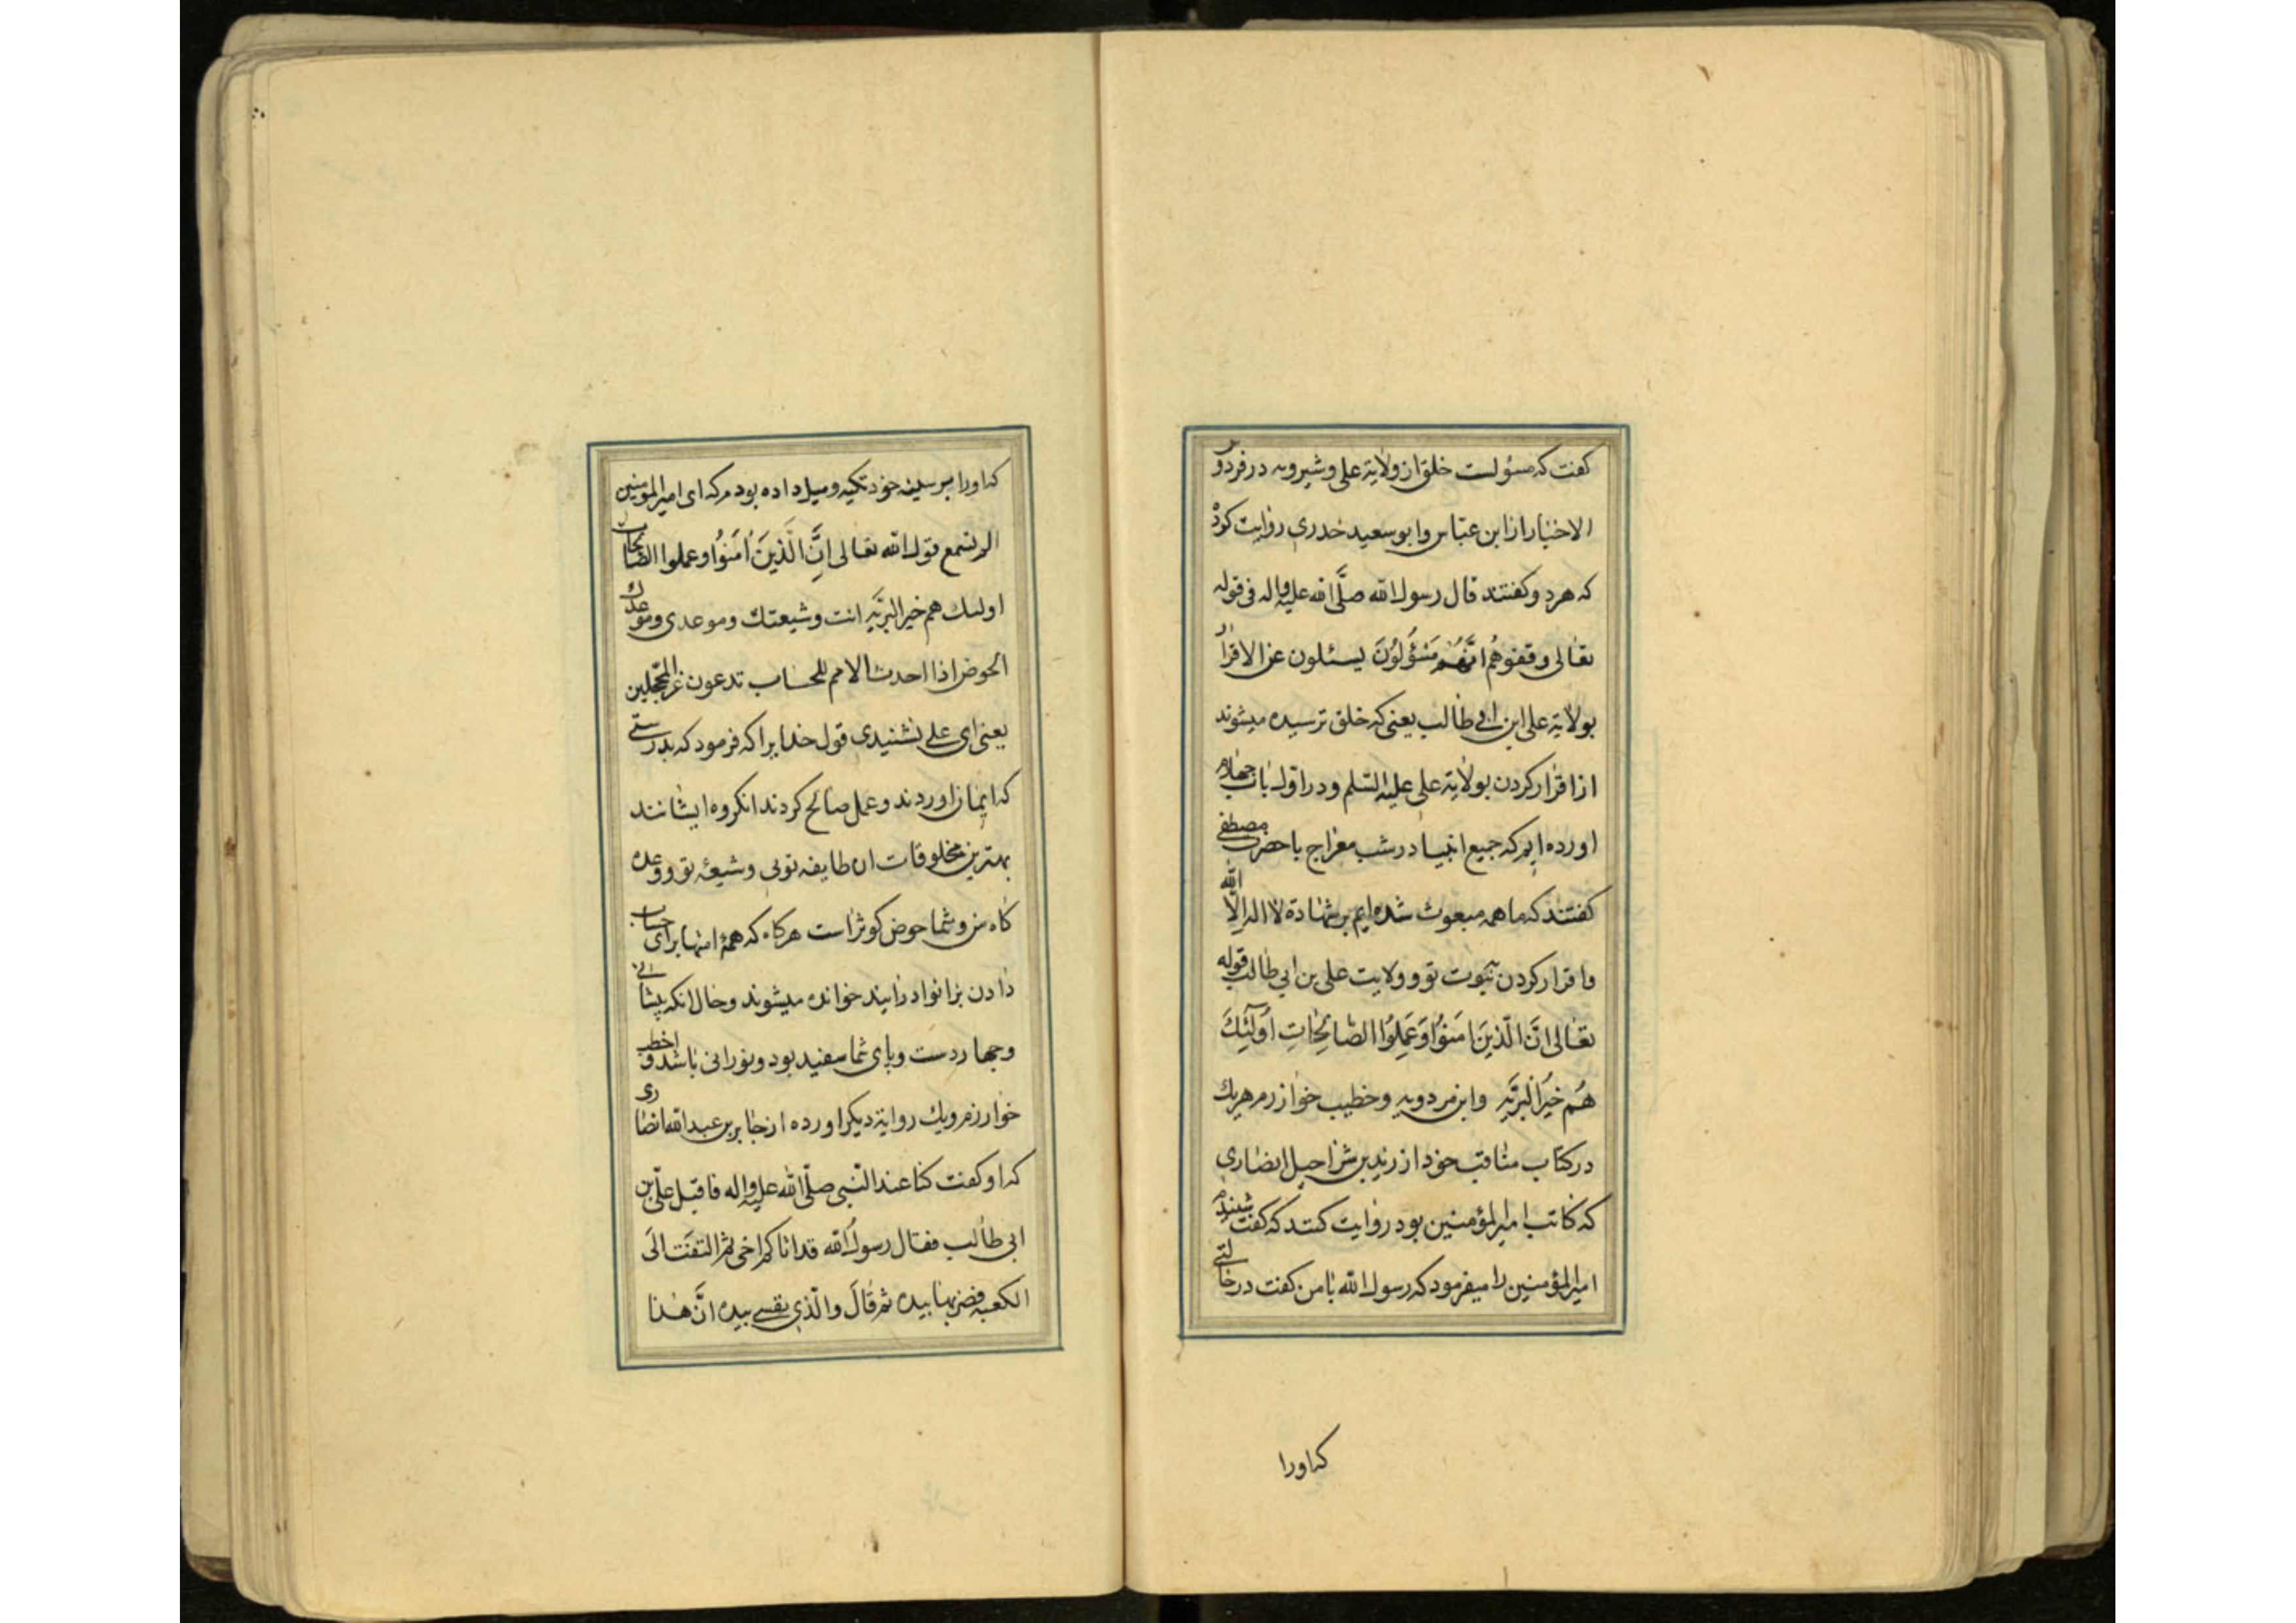 کفت که مسؤلست خلق از ولایة علی و شیرویه در فردو
الاخبار از ابن عبّاس و ابو سعید خدری روایت کرد
که هر دو کفتند قال رسول الله صلَّی الله علیه واله فی قوله
تعالی وقفوهُم انّهُم مَسْؤُلوُنَ یسئلون عن الاقرار
بولایة علی ابن ابی طالب یعنی که خلق ترسیده میشوند
از اقرار کردن بولایة علی علیه السّلم و در اول باب چهارم
اورده ایم که جمیع انبیا در شب معراج با حضرت مصطفی
کفتند که ما همه مبعوث شده ایم بر شهادة لا اله الّا الله
و اقرار کردن بنبوت تو و ولایت علی بن ابی طالب قوله
تعالی انَّ الّذینَ امَنوُا وَعَمِلوُا الصّالِحاتِ اُولٰئِكَ
هُم خیرُ البَرّیَه وابن مردویه و خطیب خوارزم هریك
در کتاب مناقب خود از زید بن شراحیل انصاری
که کاتب امیر المؤمنین بود روایت کنند که کفت شنیدم
امیر المؤمنین را میفرمود که رسول الله با من کفت در حالتی
که او را
که او را بر سینه خود تکیه و میل داده بودم که ای امیر المومنین
الم تسمع قول الله تعالی انَّ الَّذینَ امَنوُا وعملوا الصّالحات
اولئك هم خیر البرّیَه انت وشیعتك وموعدی وموعدك
الحوض اذا احدث الامم للحساب تدعون غر المحجّلین
یعنی ای علی نشنیدی قول خدا یرا که فرمود که بدرستی
که ایمان اوردند و عمل صالح کردند انکروه ایشانند
بهترین مخلوقات ان طایفه توئی و شیعۀ تو و وعده
کاه من و شما حوض کوثر است هر کاه که همۀ امتها برای حساب
دادن بزانو در ایند خوانده میشوند و حال انکه پیشانی
و چهار دست و پای شما سفید بود و نورانی باشد و اخطب
خوارزم و یك روایة دیکر اورده از جابر بن عبد الله انصاری
که او کفت کنا عند النّبی صلّی الله علیه واله فاقبل علیّ بن
ابی طالب فقال رسول الله قد اتاکم اخی ثم التفت الَی
الکعبه فضربها بیده ثم قالَ والّذی نفسی بیده انَّ هٰذا